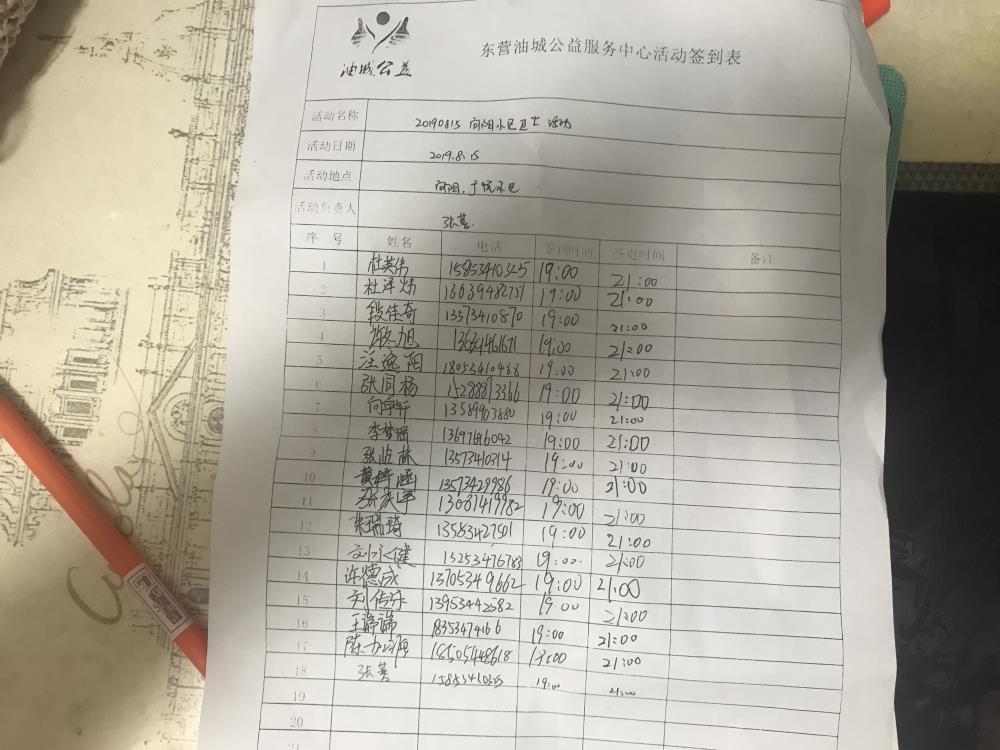 油城公益
东营油城公益服务中心活动签到表
活动名称 20190815 向阳小巴卫士 活动
活动日期 2019.8.15
活动地点 向阳,
活动负责人 张萱.
序 号 姓名 电话 签到时间 签退时间 备注
1 杜英伟 15853410325 19:00 21:00
2 杜洋炜 13639482751 19:00 21:00
3 段佳奇 13573410870 19:00 21:00
4 旭 19:00 21:00
5 汪逸阳 18053410488 19:00 21:00
6 张同杨 15288813366 19:00 21:00
7 向宇轩 13589963880 19:00 21:00
8 李梦瑶 19:00 21:00
9 张皓林 13573410314 19:00 21:00
10 黄梓涵 13573429986 19:00 21:00
11 19:00 21:00
12 朱瑞琦 19:00 21:00
13 刘永健 15253476783 19:00 21:00
14 许德成 13705349662 19:00 21:00
15 刘传 13953442582 19 00 21:00
16 王 19:00 21:00
17 陈 21:00
18 张萱 15853410325 19:00 21:00
19
20
21